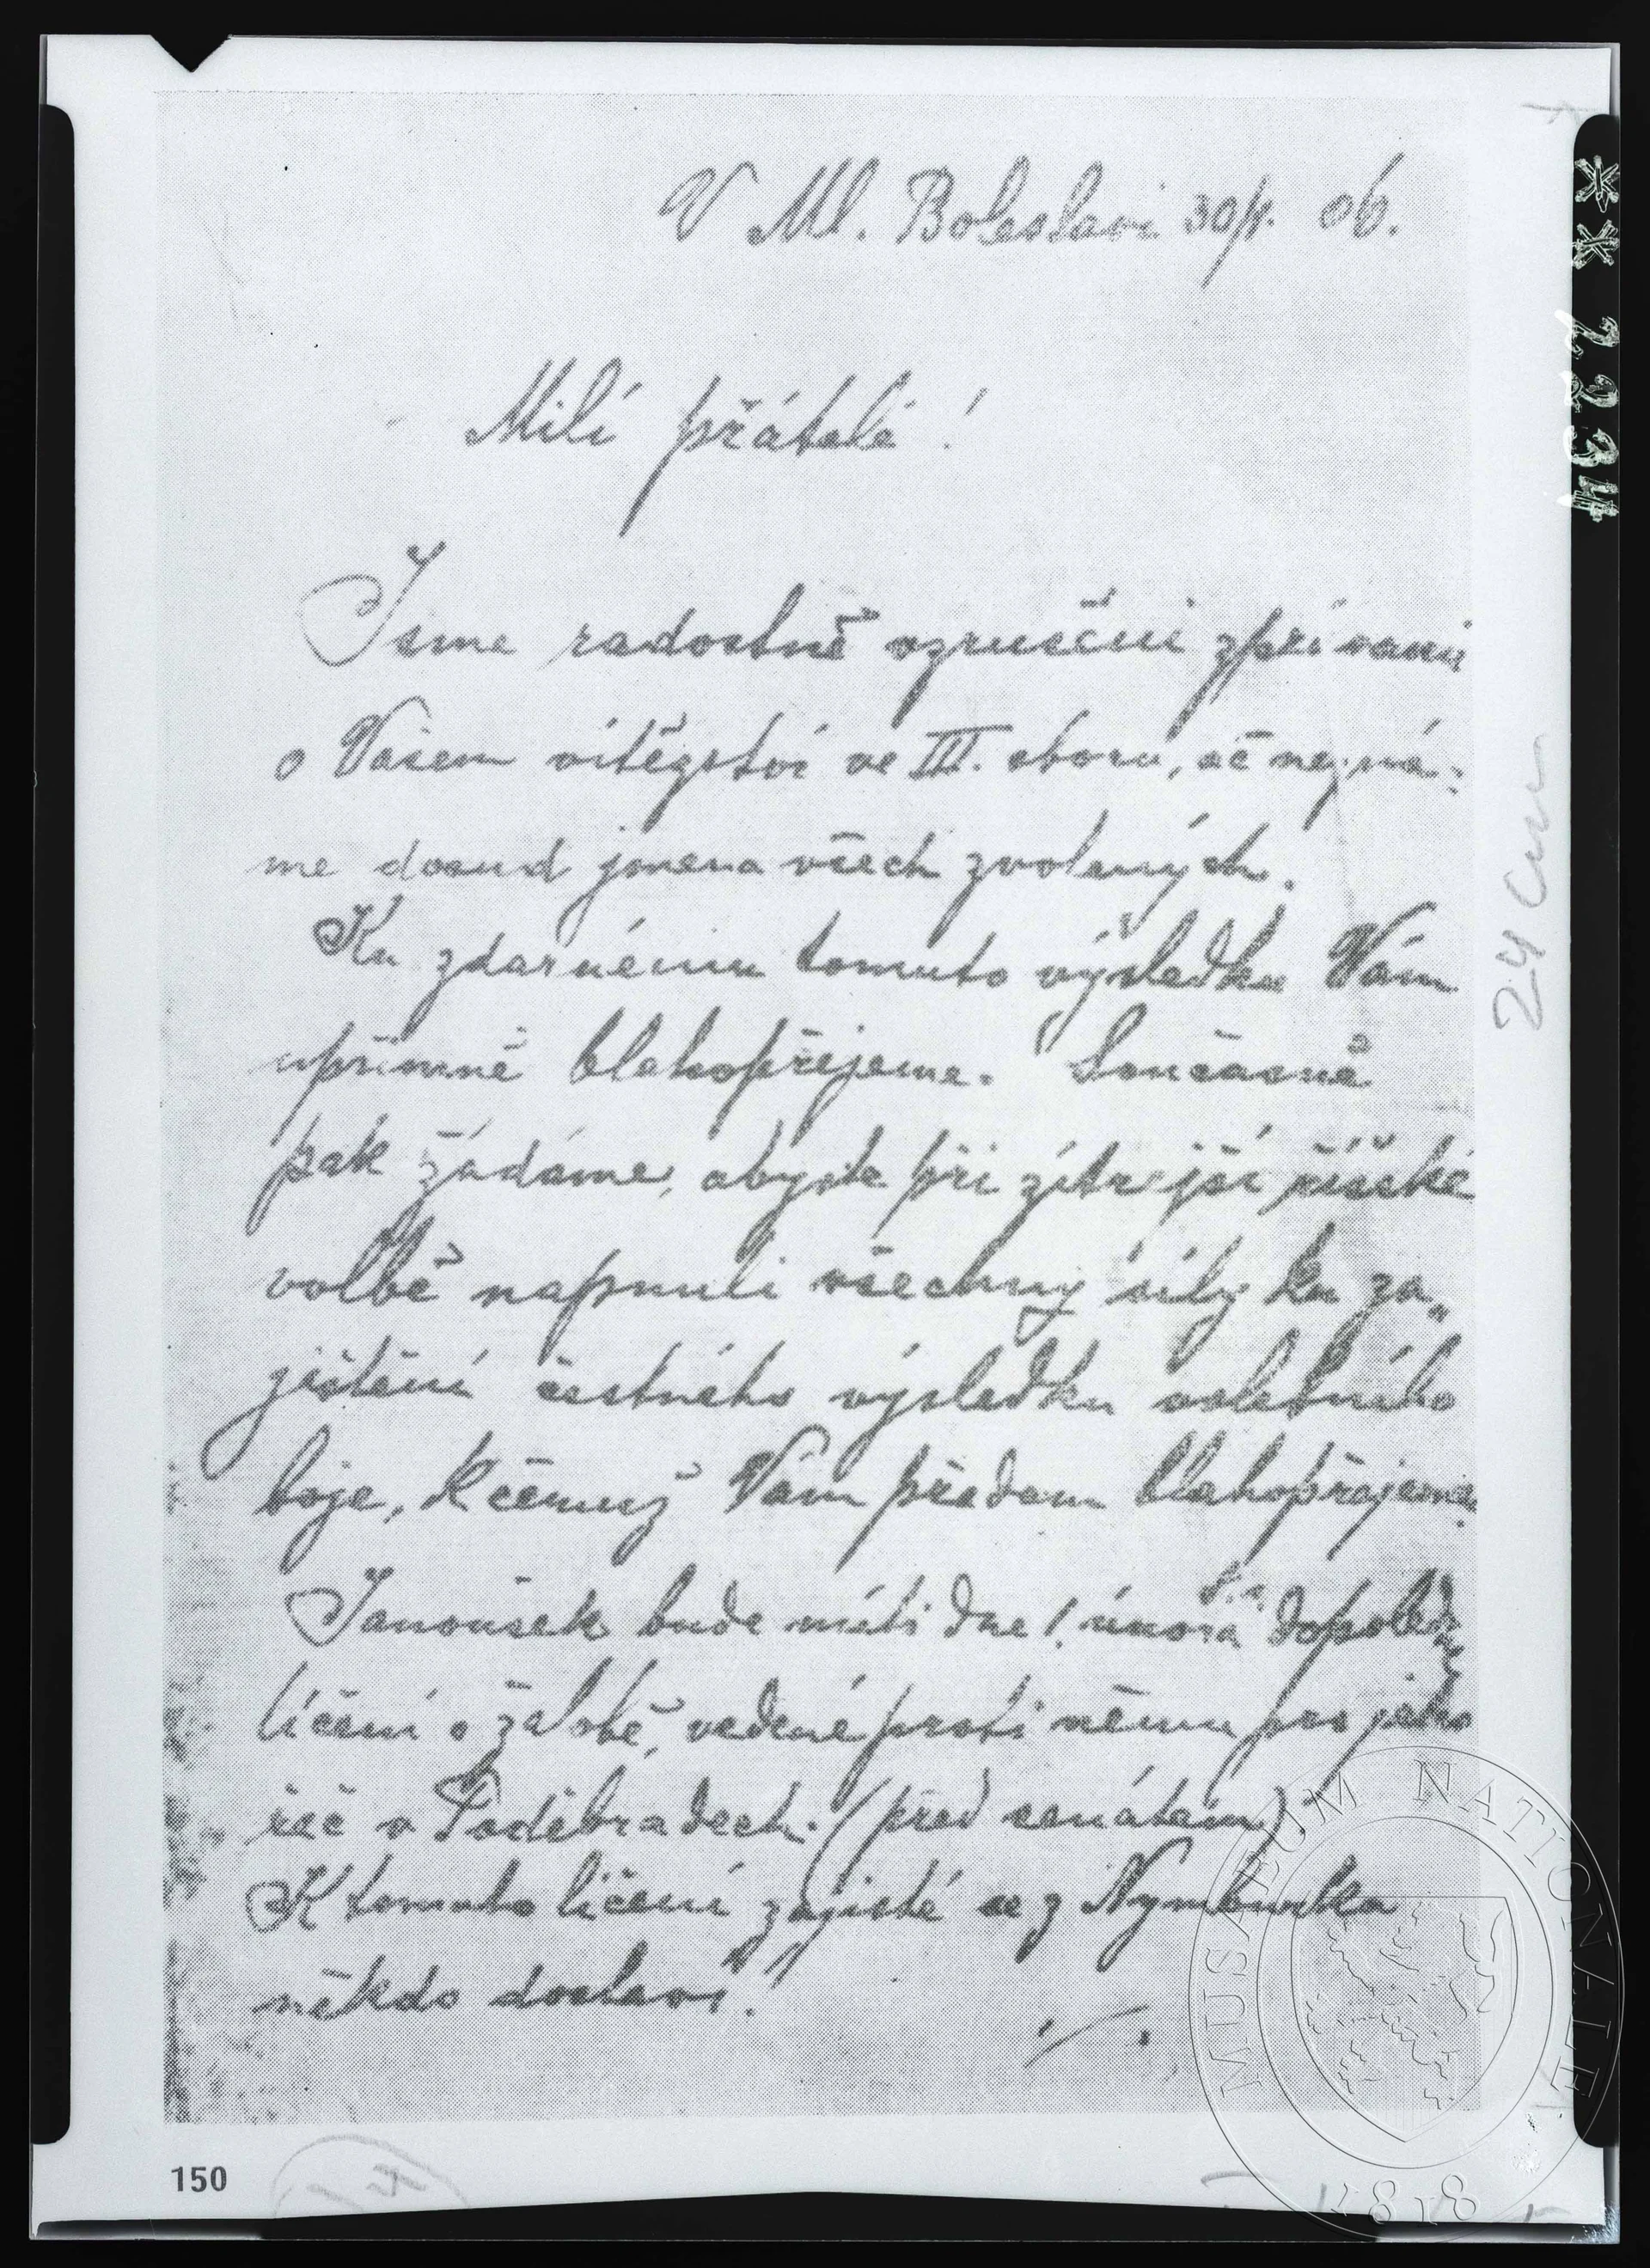 V Ml. Boleslavi 30/1. 06.
Milí přátelé!
Jsme radostně vzrušeni zprávami
o Vašem vítězství ve III. sboru, ač nezná-
me dosud jména všech zvolených.
Ku zdarnému tomuto výsledku Vám
upřímně blahopřejeme. Současně
pak žádáme, abyste při zítrejší říšské
volbě napnuli všechny síly ku za„
jištění čestného výsledku volebního
boje, k čemuž Vám předem blahopřejeme.
Janoušek bude míti dne 1. února dopoledne
líčení o žalobě, vedené proti němu pro jeho
řeč v Poděbradech. (před senátem)
K tomuto líčení zajisté se z Nymburka
někdo dostaví!
./.
24 cm
** 2234
150
MUSAEUM NATIONALE
1818